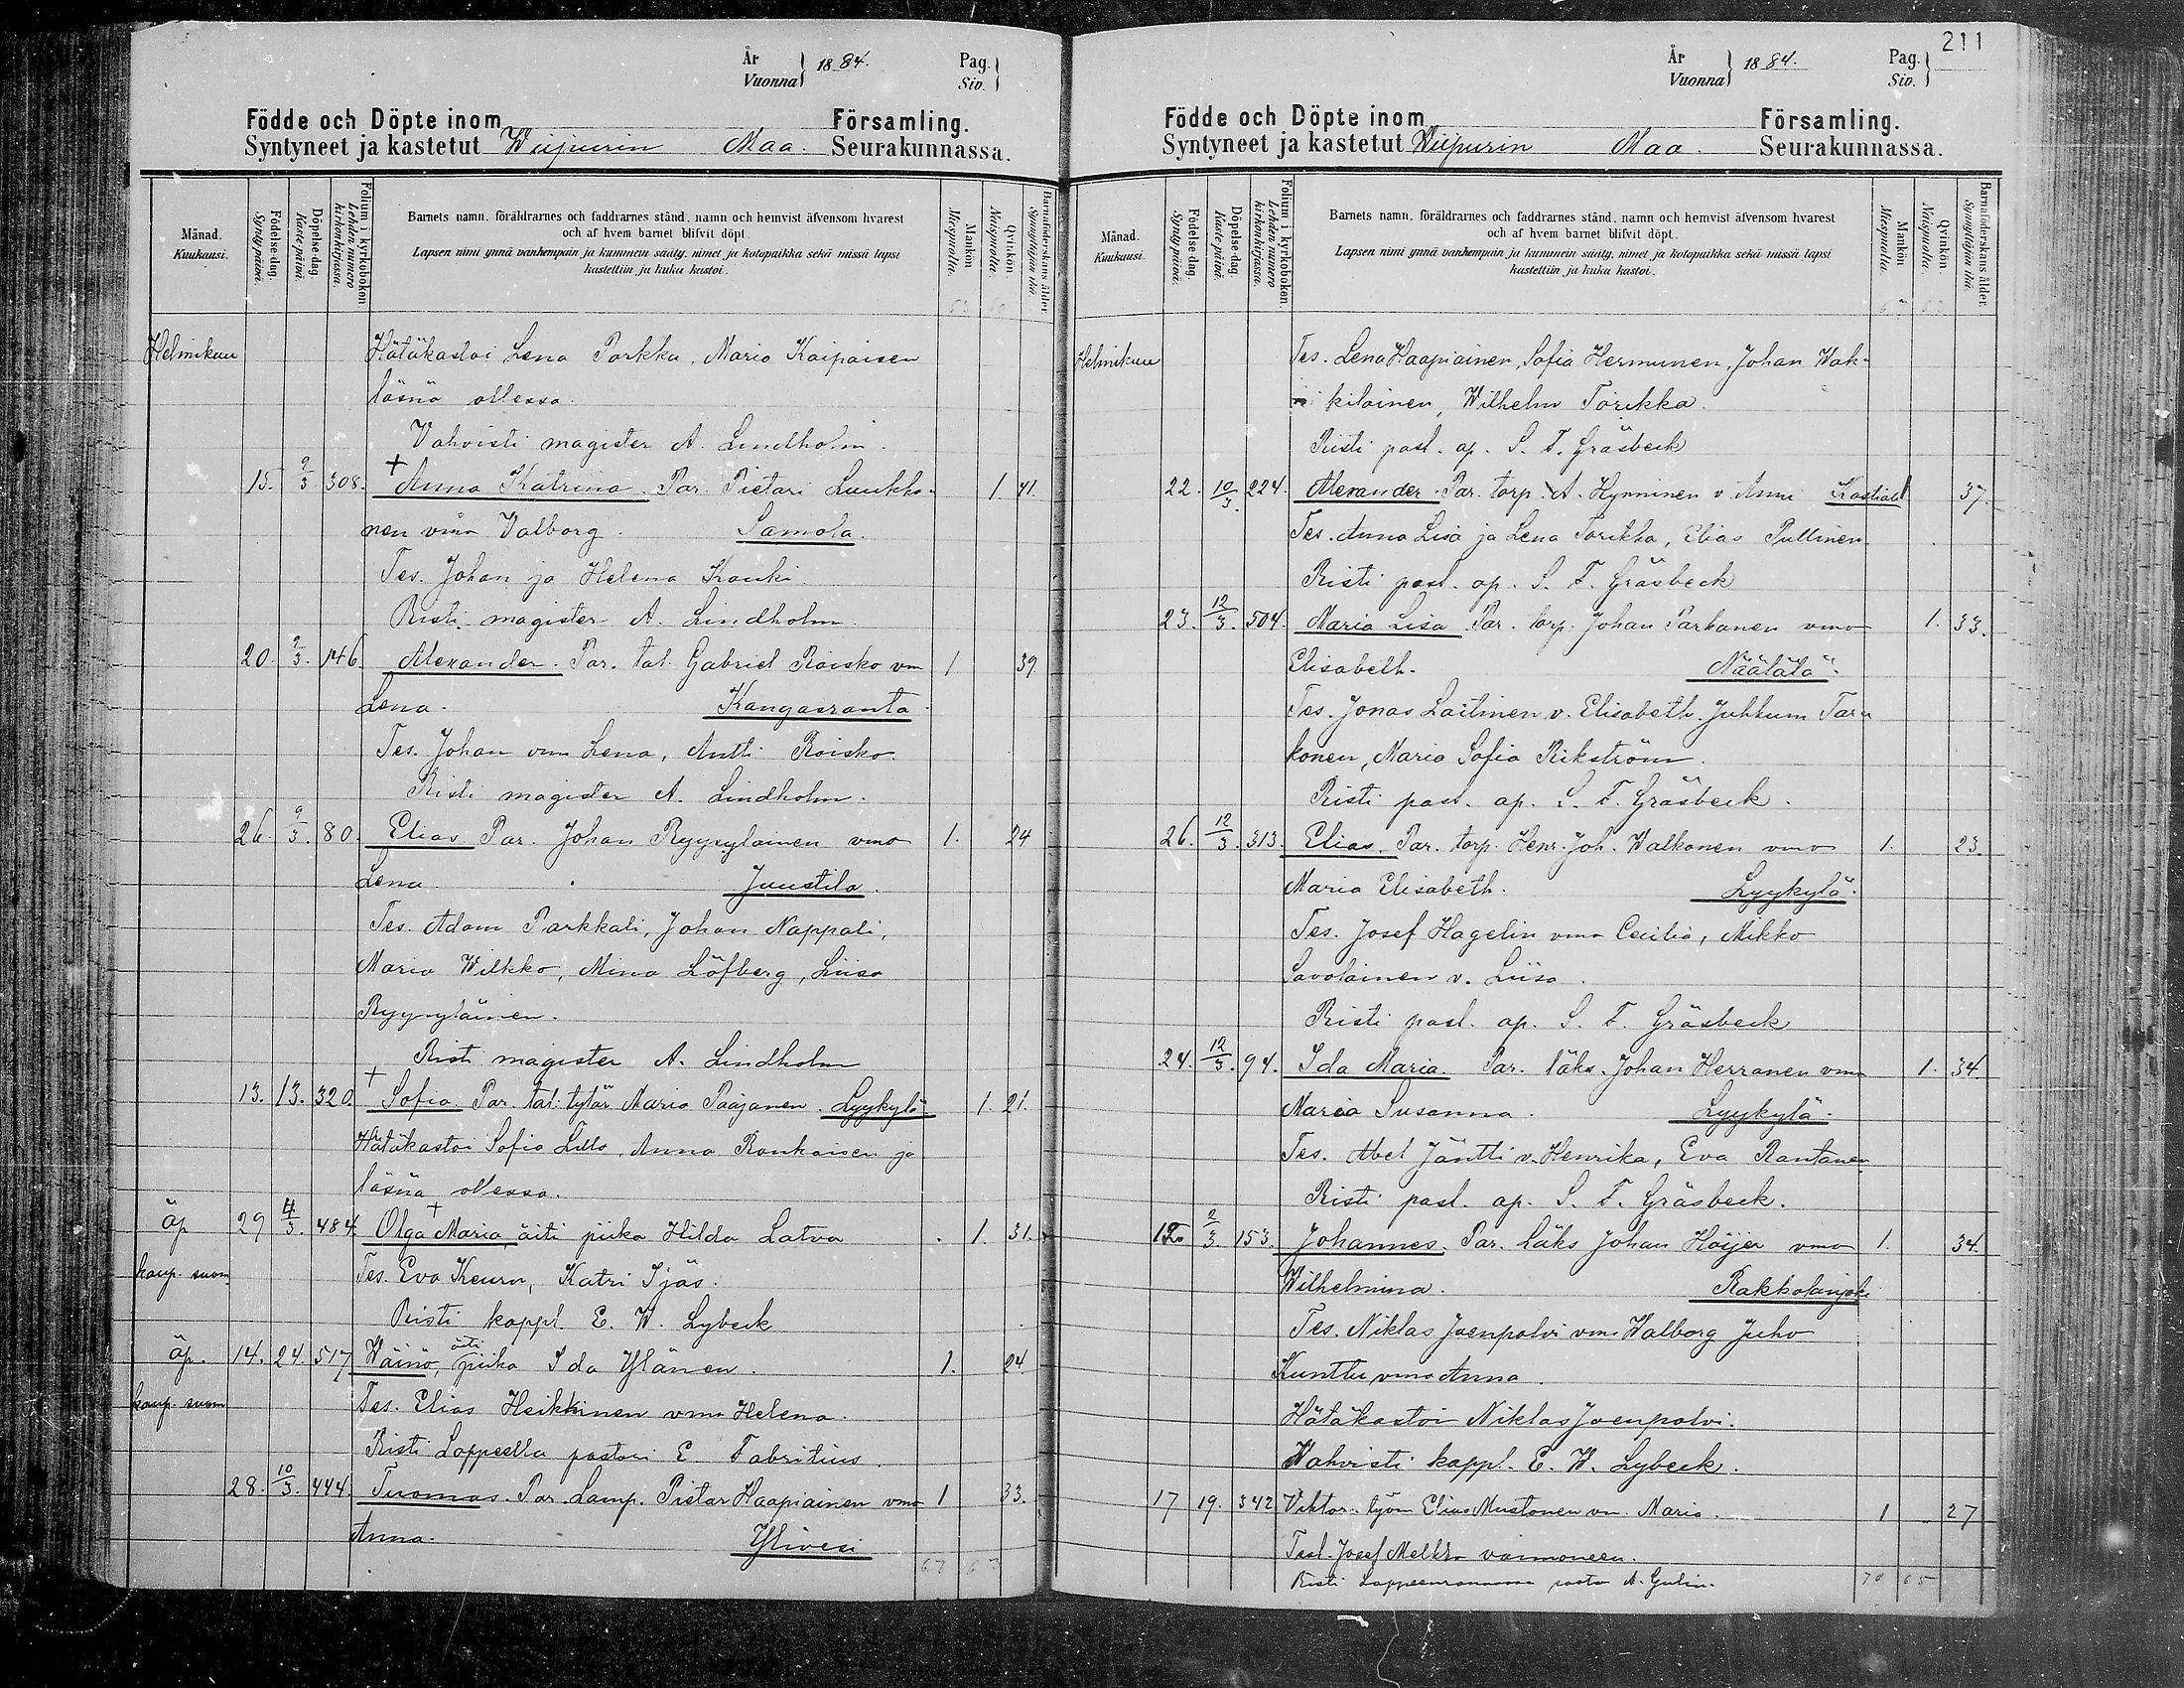 År
Vuonna } 1884.
Pag.
Siv. }
Födde och Döpte inom Församling.
Syntyneet ja kastetut Wiipurin Maa. Seurakunnassa.
Månad.
Kuukausi.
Födelse-dag.
Syntypäivä.
Döpelse-dag.
Kastepäivä.
Folium i kyrkoboken.
Lehden numero kirkonkirjassa.
Barnets namn, föräldrarnes och faddrarnes stånd, namn och hemvist äfvensom hvarest
och af hvem barnet blifvit döpt.
Lapsen nimi ynnä vanhempain ja kummein sääty, nimet ja kotopaikka sekä missä lapsi
kastettiin ja kuka kastoi.
Mankön
Miespuolta.
Qvinkön
Naispuolta.
Barnaföderskans ålder.
Synnyttäjän ikä.
Helmikuu Hätäkastoi Lena Parkka, Maria Kaipaisen
läsnä ollessa.
Vahvisti magister A. Lindholm.
15. 9/3 308. + Anna Katrina. Par. Pietari Luukko- 1. 41.
nen vmo Valborg. Samola.
Tes. Johan ja Helena Kauki.
Risti magister A. Lindholm.
20. 9/3. 146. Alexander. Par. tal. Gabriel Roisko vm 1 39
Lena. Kangasranta.
Tes. Johan vm Lena, Antti Roisko.
Risti magister A. Lindholm.
26. 9/3. 80. Elias Par. Johan Ryysyläinen vmo 1. 24
Lena. Juustila.
Tes. Adam Parkkali, Johan Nappali,
Maria Wilkko, Mina Löfberg, Liisa
Ryysyläinen.
Risti magister A. Lindholm
13. 13. 320. + Sofia. Par. tal: tytär Maria Paajanen. Lyykylä 1. 21.
Hätäkastoi Sofia Lillo, Anna Ronkaisen ja
läsnä ollessa.
äp 29 4/3. 484. + Olga Maria, äiti piika Hilda Latva 1. 31.
kaup. suom. Tes. Eva Keuru, Katri Ijäs.
Risti kappl. E. W. Lybeck
äp. 14. 24. 517 Wäinö, äiti piika Ida Ylänen. 1. 24.
kaup. suom Tes. Elias Heikkinen vmo Helena.
Risti Loppeella pastori E. Fabritius.
28. 10/3. 444. Tuomas. Par. Lamp. Pietar Haapiainen vmo 1 33.
Anna. Ylivesi
67 67
211
År
Vuonna } 1884.
Pag.
Siv. }
Födde och Döpte inom Församling.
Syntyneet ja kastetut Wiipurin Maa. Seurakunnassa.
Månad.
Kuukausi.
Födelse-dag.
Syntypäivä.
Döpelse-dag.
Kastepäivä.
Folium i kyrkoboken.
Lehden numero kirkonkirjassa.
Barnets namn, föräldrarnes och faddrarnes stånd, namn och hemvist äfvensom hvarest
och af hvem barnet blifvit döpt.
Lapsen nimi ynnä vanhempain ja kummein sääty, nimet ja kotopaikka sekä missä lapsi
kastettiin ja kuka kastoi.
Mankön
Miespuolta.
Qvinkön
Naispuolta.
Barnaföderskans ålder.
Synnyttäjän ikä.
Helmikuu Tes. Lena Haapiainen, Sofia Hermunen, Johan Wak-
kilainen, Wilhelm Torikka.
Risti past. ap. S. F. Gräsbeck
22. 10/3. 224. Alexander. Par. torp. A. Hynninen v. Anni Kostiala 37.
Tes. Anna Lisa ja Lena Torikka, Elias Pullinen
Risti past. ap. S. F. Gräsbeck
23. 12/3. 504. Maria Lisa. Par. torp. Johan Tarkonen vmo 1. 33.
Elisabeth. Näätälä.
Tes. Jonas Laitinen v. Elisabeth. Juhkum Tar-
konen, Maria Sofia Rikström.
Risti past. ap. S. F. Gräsbeck.
26. 12/3. 313. Elias. Par. torp. Henr. Joh. Walkonen vmo 1. 23.
Maria Elisabeth. Lyykylä.
Tes. Josef Hagelin vmo Cecilia, Mikko
Savolainen v. Liisa.
Risti past. ap. S. F. Gräsbeck
24. 12/3. 94. Ida Maria. Par. läks. Johan Herranen vmo 1. 34.
Maria Susanna. Lyykylä.
Tes. Abel Jäntti v. Henrika, Eva Rantanen
Risti past. ap. S. F. Gräsbeck.
2/3. 153. Johannes. Par. Läks Johan Höijer vmo 1. 34.
Wilhelmina. Rakkolanjoki
Tes. Niklas Juenpolvi vm. Walborg Juho
Kunttu vmo Anna.
Hätäkastoi Niklas Juenpolvi.
Wahvisti kappl. E. W. Lybeck.
17 19. 342 Viktor. työm Elias Mustonen vn. Maria. 1 27
Test. Josef Melkko vaimoneen.
Risti Lappeenrannassa A. Gulin.
70 65